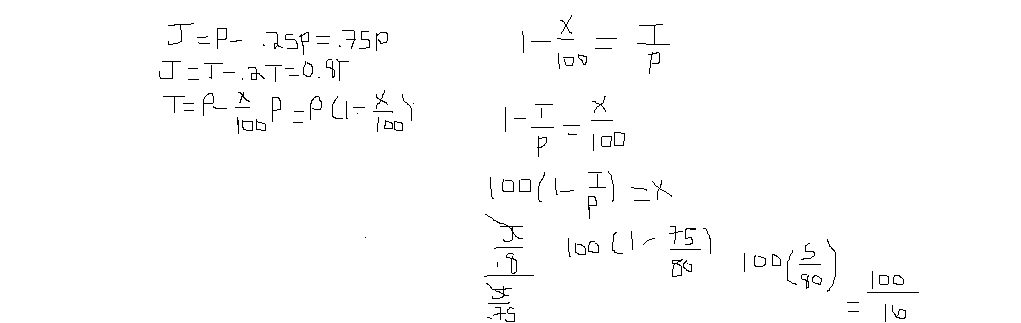 J = P - .25P = .75P
J = T - .2T = 0.8T
T = P - x/100 P = P(1 - x/100)
1 - x/100 = T/P
1 - T/P = x/100
100(1 - T/P) = x
J/.8 / J/.75
100(1 - 75/80)
100(5/80) = 100/16